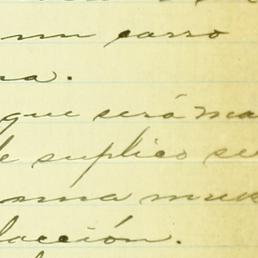 un carro
na.
que será ma
le suplico se
oma mues
lación.